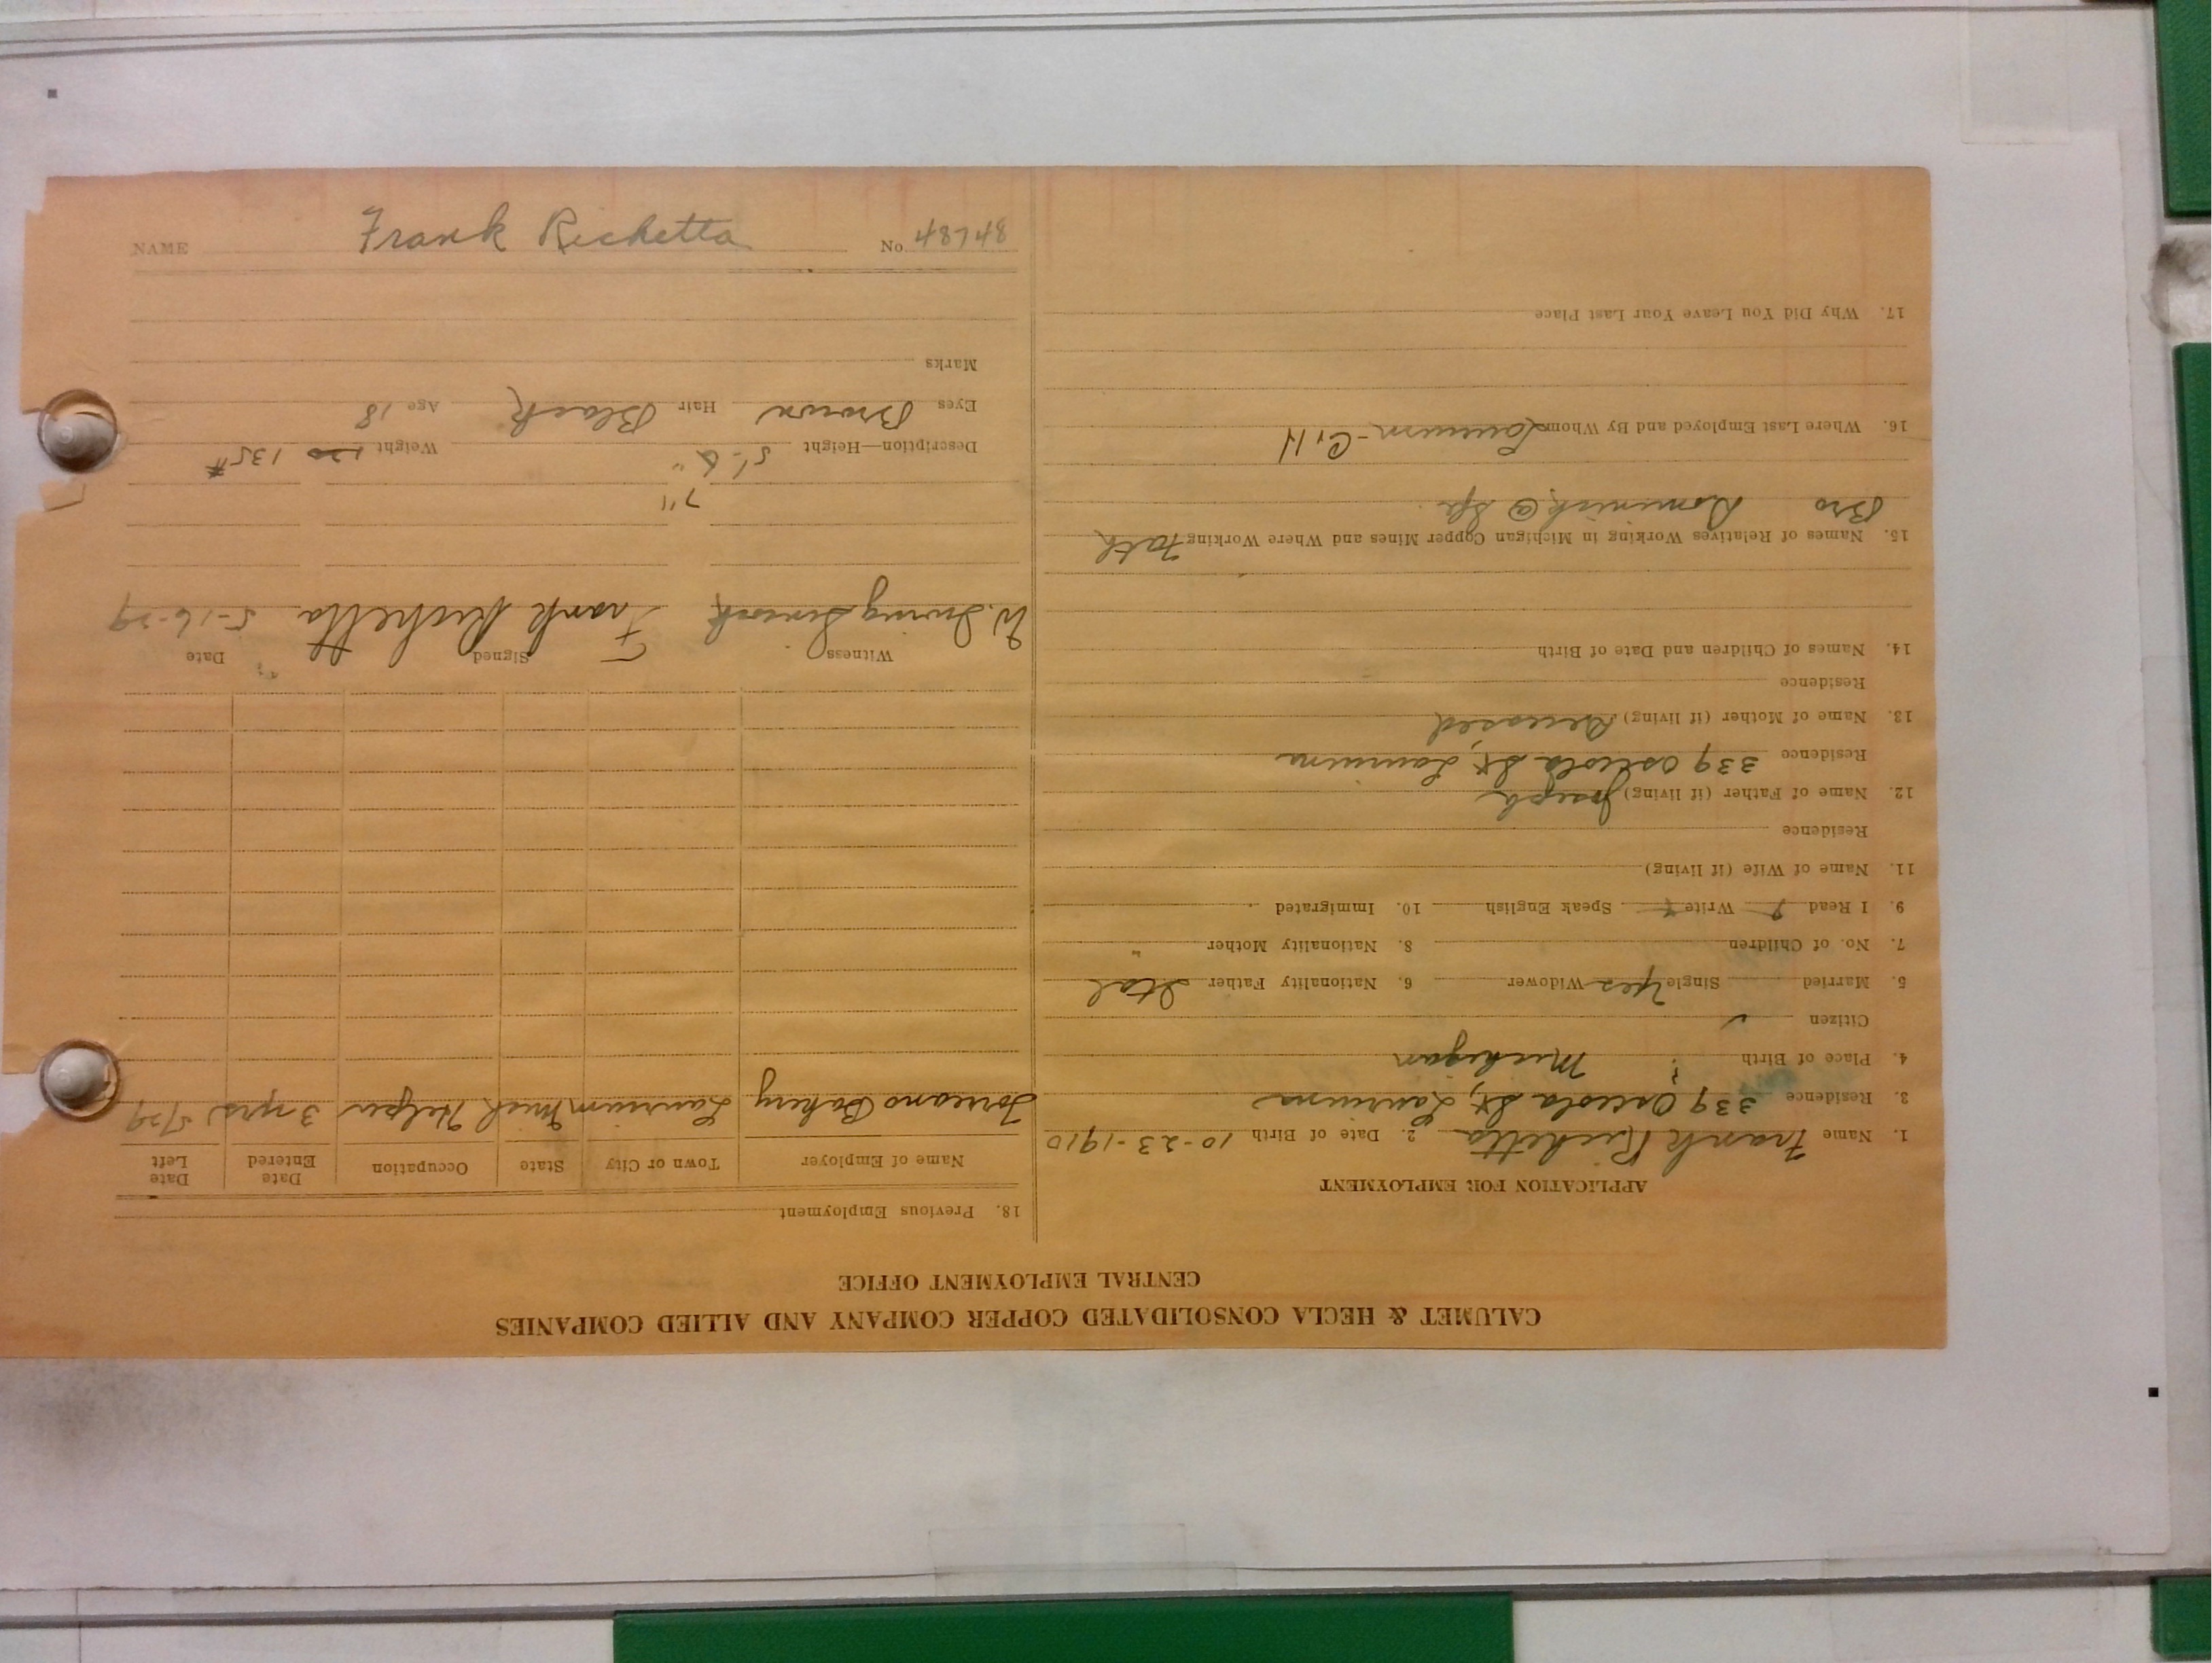 CALUMET & HECLA CONSOLIDATED COPPER COMPANY AND ALLIED COMPANIES
CENTRAL EMPLOYMENT OFFICE
APPLICATION FOR EMPLOYMENT
1. Name Frank Richetta 2. Date of Birth 10-23-1910
3. Residence 339 Osceola St, Laurium
4. Place of Birth Michigan
Citizen ✓
5. Married Single Yes Widower 6. Nationality Father Ital
7. No. of Children 8. Nationality Mother "
9. I Read Write Speak English 10. Immigrated
11. Name of Wife (if living)
Residence
12. Name of Father (if living) Joseph
Residence 339 Osceola St, Laurium
13. Name of Mother (if living) Deceased
Residence
14. Names of Children and Date of Birth
15. Names of Relatives Working in Michigan Copper Mines and Where Working Fath
Bro Dominick @
16. Where Last Employed and By Whom Laurium - C&H
17. Why Did You Leave Your Last Place
18. Previous Employment
Name of Employer Town or City State Occupation Date Entered Date Left
Toreano Bakery Laurium Mich Helper 3 yrs 5/29
Witness Signed Date
W. Irving Frank Richetta 5-16-29
7"
Description—Height 5'-6" Weight 120 135#
Eyes Brown Hair Black Age 18
Marks
NAME Frank Richetta No. 48748